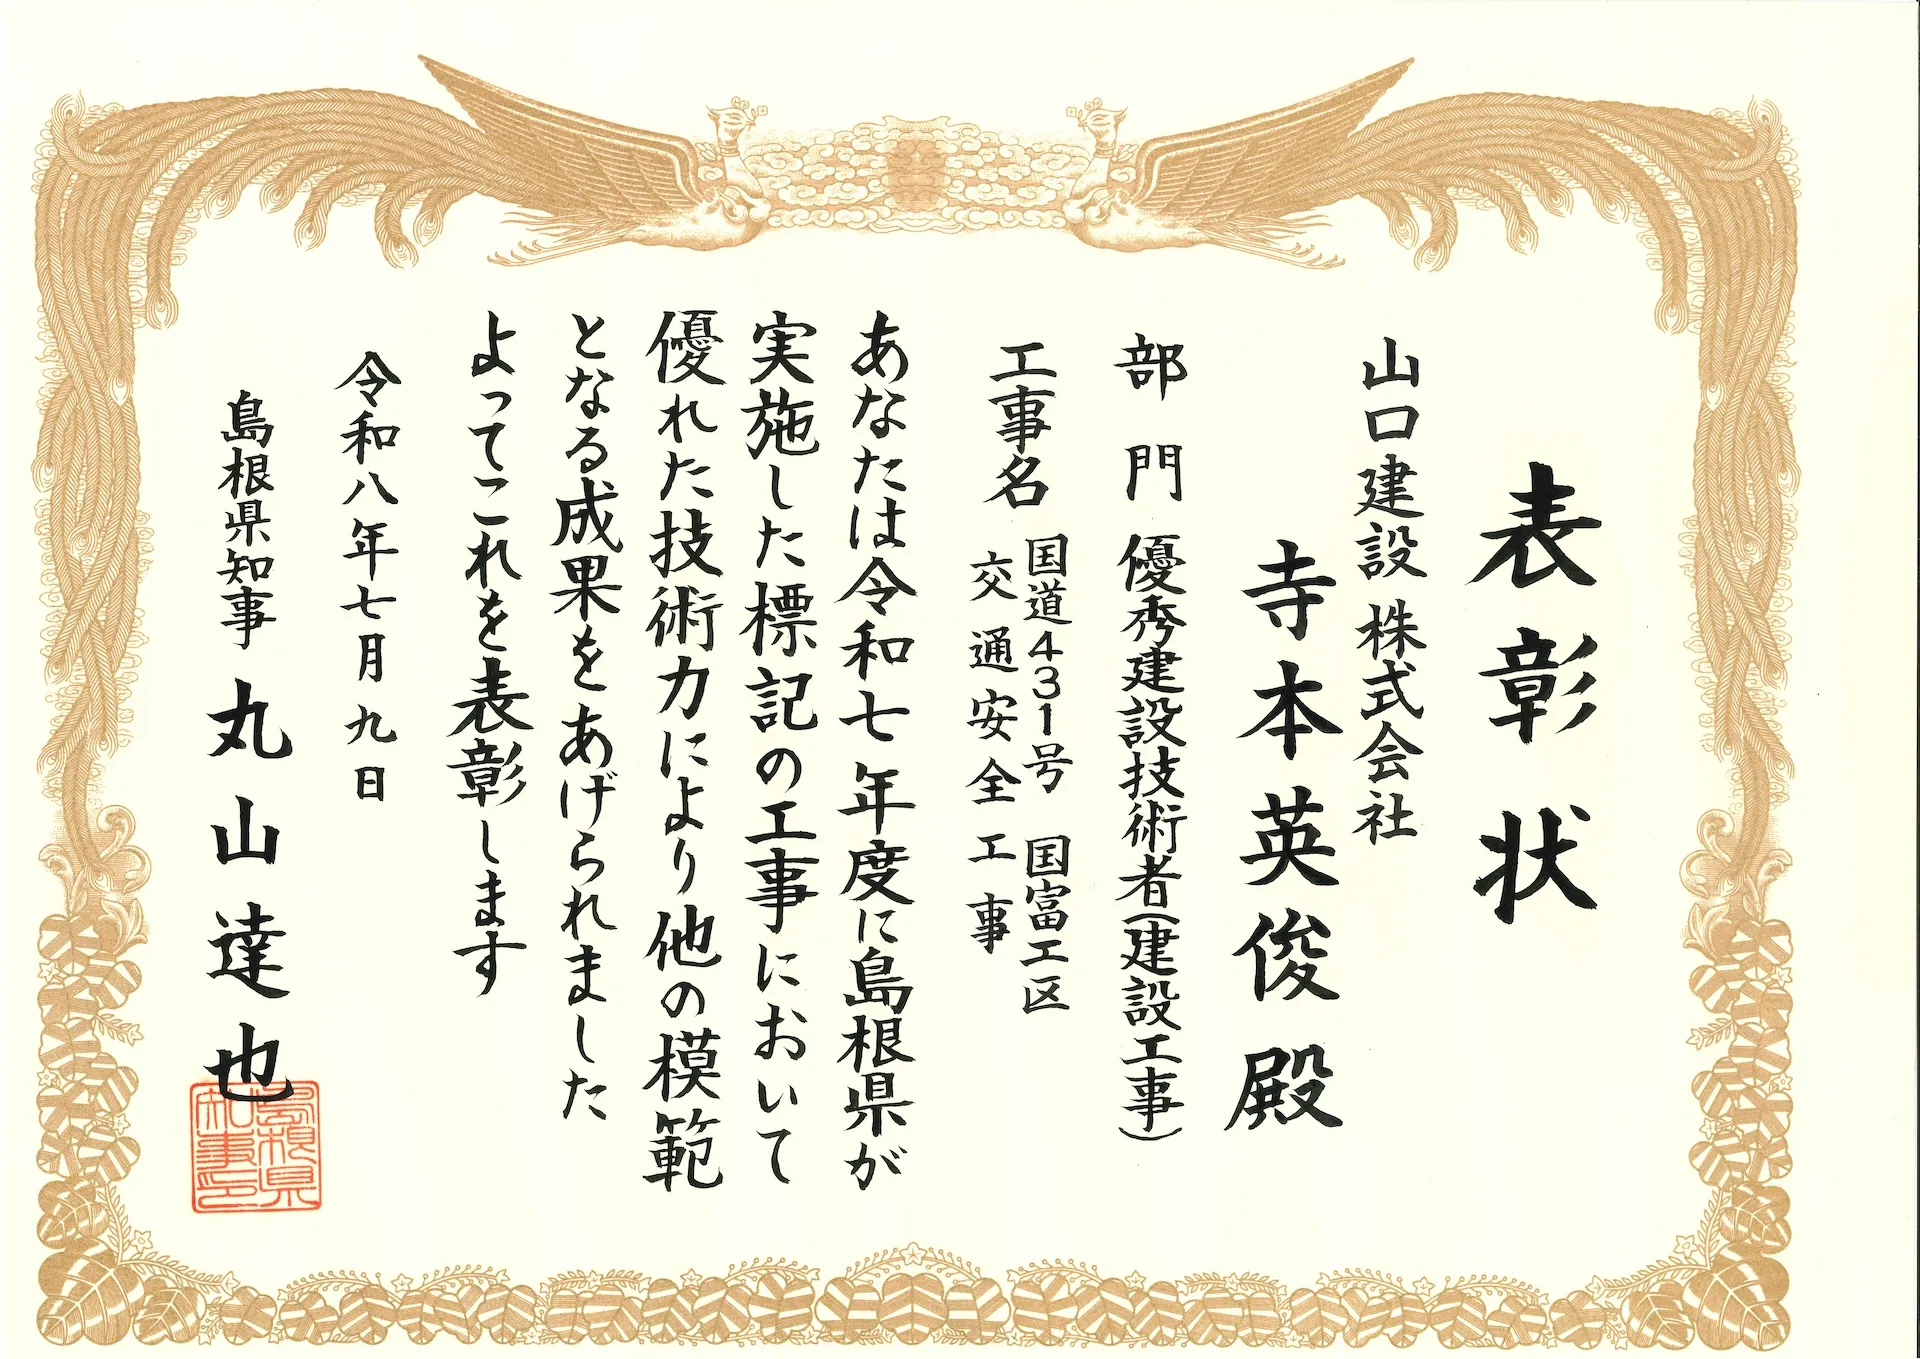 表彰状
山口建設株式会社
寺本英俊殿
部門 優秀建設技術者(建設工事)
工事名 国道431号 国富工区
交通安全工事
あなたは令和七年度に島根県が
実施した標記の工事において
優れた技術力により他の模範
となる成果をあげられました
よってこれを表彰します
令和八年七月九日
島根県知事 丸山達也
島根県
知事印